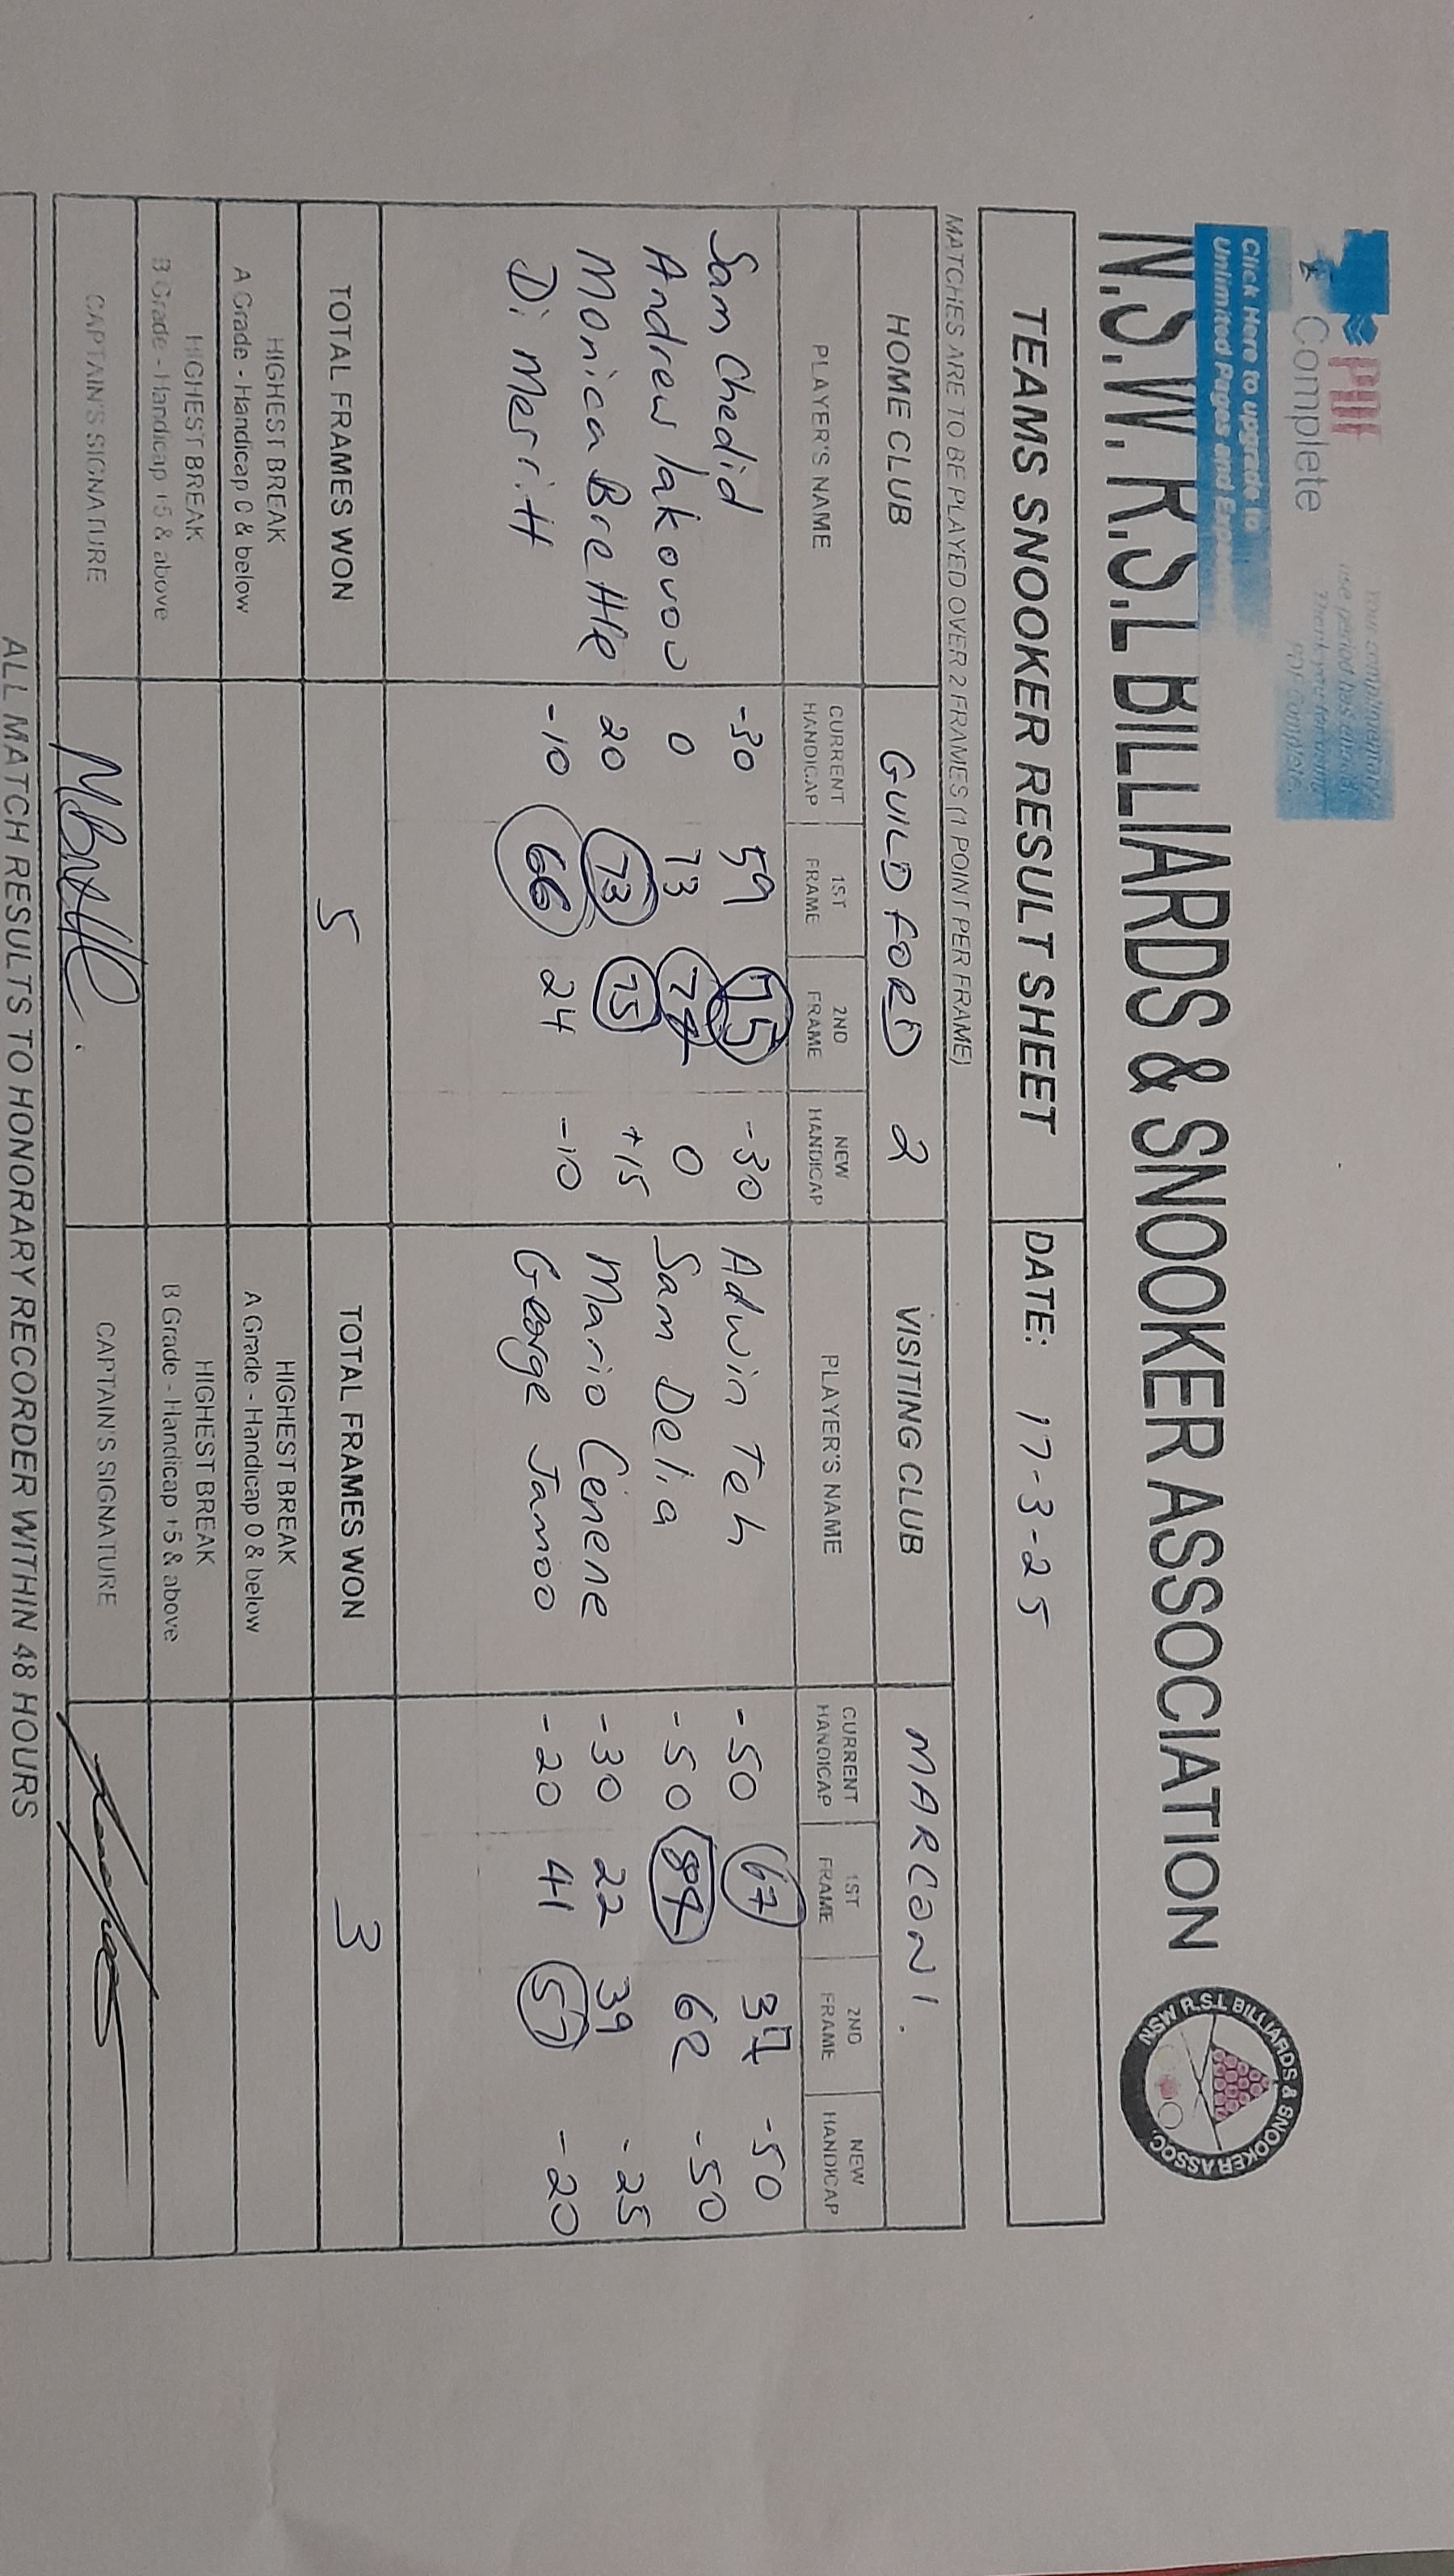 PDF
Complete
Your complimentary
use period has ended.
Thank you for using
PDF Complete.
Click Here to upgrade to
Unlimited Pages and Expanded
N.S.W. R.S.L BILLIARDS & SNOOKER ASSOCIATION
NSW R.S.L BILLIARDS & SNOOKER ASSOC.
TEAMS SNOOKER RESULT SHEET DATE: 17-3-25
MATCHES ARE TO BE PLAYED OVER 2 FRAMES (1 POINT PER FRAME)
HOME CLUB GUILDFORD 2 VISITING CLUB MARCONI.
PLAYER'S NAME CURRENT HANDICAP 1ST FRAME 2ND FRAME NEW HANDICAP PLAYER'S NAME CURRENT HANDICAP 1ST FRAME 2ND FRAME NEW HANDICAP
Sam Chedid -30 59 75 -30 Adwin Teh -50 67 37 -50
Andrew Iakovou 0 13 0 Sam Delia -50 62 -50
Monica Brettle 20 73 75 +15 Mario Cenene -30 22 39 -25
Di Merritt -10 66 24 -10 George Jamoo -20 41 57 -20
TOTAL FRAMES WON 5 TOTAL FRAMES WON 3
HIGHEST BREAK HIGHEST BREAK
A Grade - Handicap 0 & below A Grade - Handicap 0 & below
HIGHEST BREAK HIGHEST BREAK
B Grade - Handicap +5 & above B Grade - Handicap +5 & above
CAPTAIN'S SIGNATURE MBrettle. CAPTAIN'S SIGNATURE
ALL MATCH RESULTS TO HONORARY RECORDER WITHIN 48 HOURS